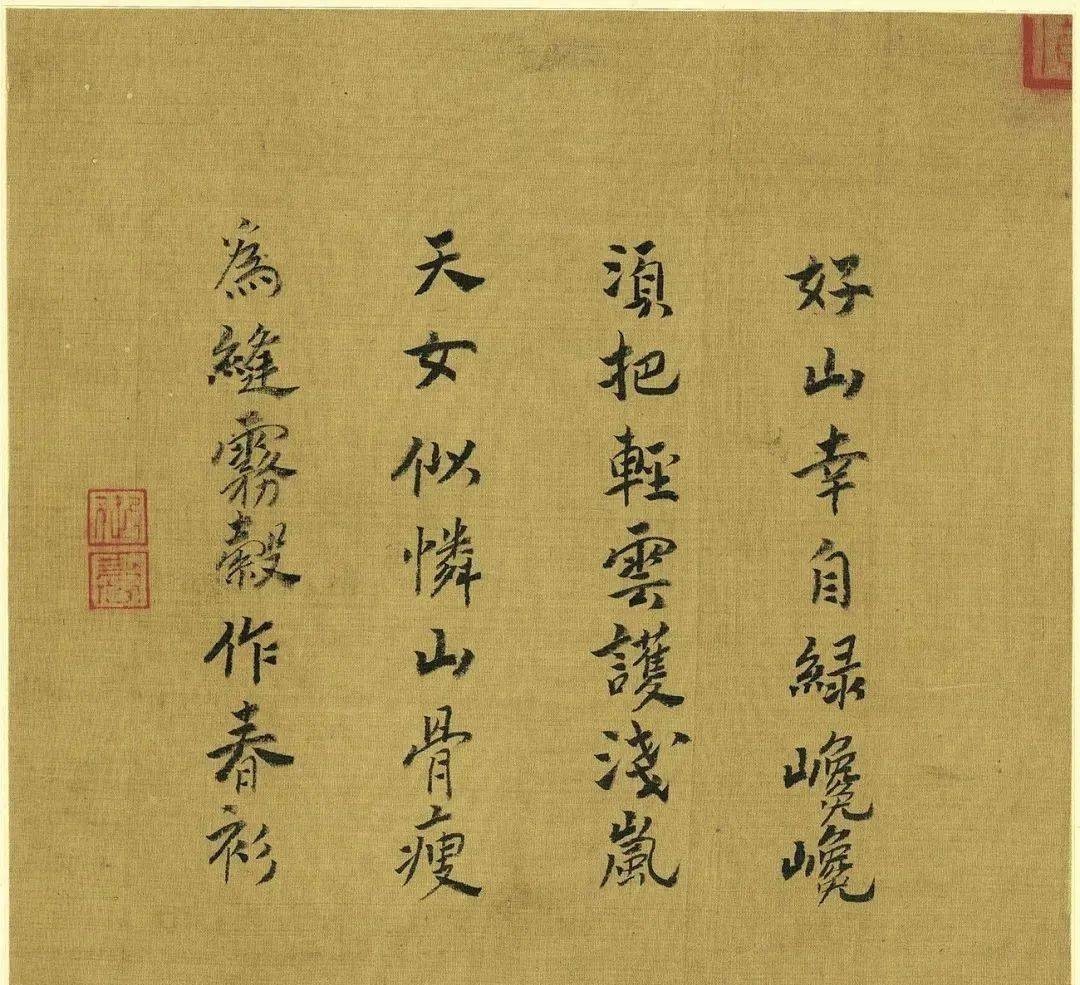 好山幸自緑巉巉
須把輕雲護淺嵐
天女似憐山骨瘦
為縫霧縠作春衫